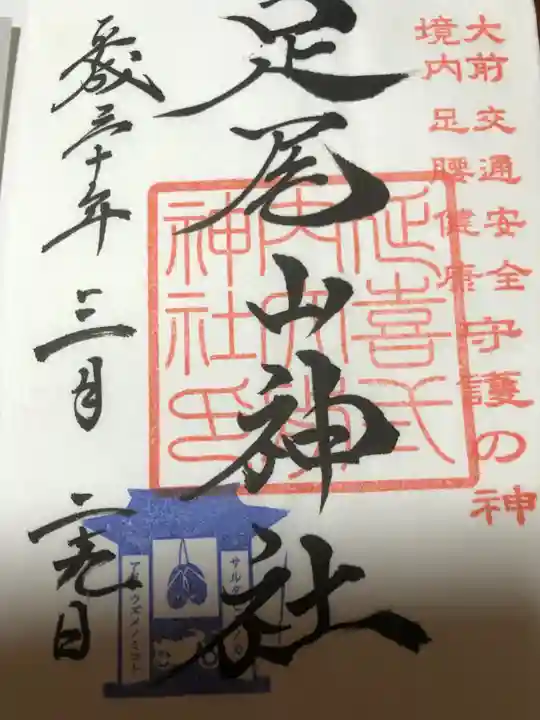 大前 交通安全 守護の神
境内 足腰健康
足尾山神社
延喜式
内大
神社印
平成三十年 三月 二十九日
サルタ
アメノウズメノミコト